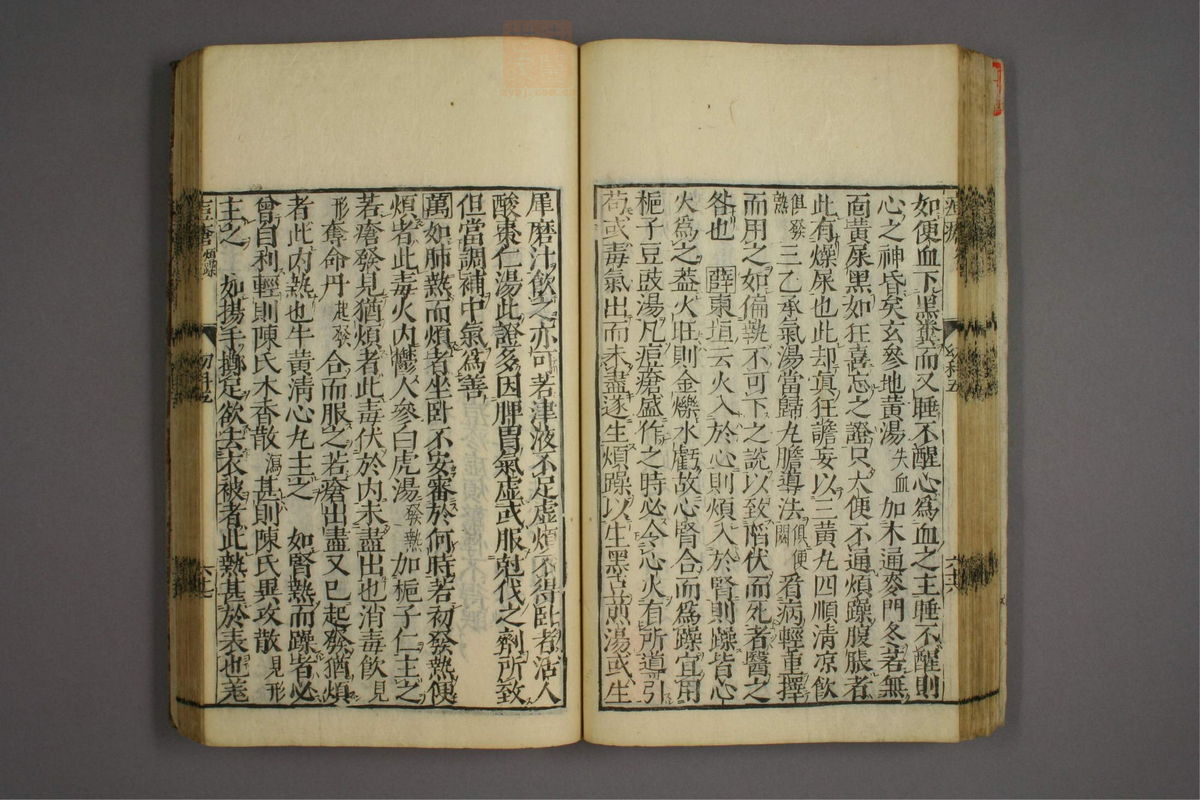 如便血下黑糞而又睡不醒心為血之主睡不醒則
心之神昏矣玄參地黃湯失血加木通麥門冬若無
面黃屎黑如狂喜忘之證只大便不通煩躁腹脹者
此有燥屎也此却真狂譫妄以三黃丸四順清凉飲
俱發熱三乙承氣湯當歸丸膽導法俱便閉看病輕重擇
而用之如偏執不可下之說以致陷伏而死者醫之
咎也 薛東垣云火入於心則煩入於腎則躁皆心
火為之葢火旺則金爍水虧故心腎合而為躁宜用
梔子豆豉湯凡痘瘡盛作之時必令心火有所導引
苟或毒氣出而未盡遂生煩躁以生黑豆煎湯或生
犀磨汁飲之亦可若津液不足虛煩不得臥者活人
酸棗仁湯此證多因脾胃氣虛或服尅伐之劑所致
但當調補中氣為善
萬如肺熱而煩者坐臥不安審於何時若初發熱便
煩者此毒火內鬱人參白虎湯發熱加梔子仁主之
若瘡發見猶煩者此毒伏於內未盡出也消毒飲見
形奪命丹起發合而服之若瘡出盡又已起發猶煩
者此內熱也牛黃清心丸主之 如腎熱而躁者必
曾自利輕則陳氏木香散瀉甚則陳氏異攻散見形
主之 如揚手擲足欲去衣被者此熱甚於表也羗
痘瘡煩躁
幼科五
六十七
幼科五
六十六